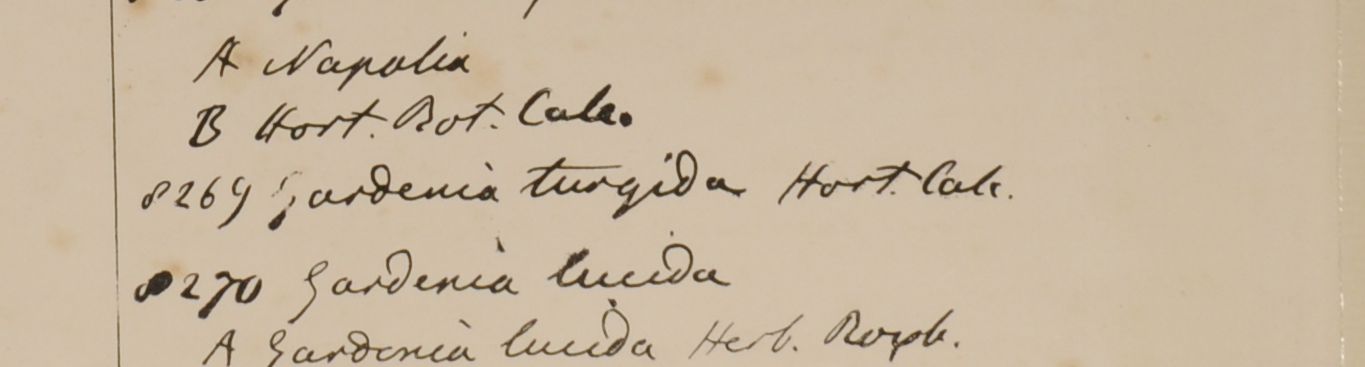 A Napalia
B Hort. Bot. Calc.
8269 Gardenia turgida Hort. Calc.
8270 Gardenia lucida
A Gardenia lucida Herb. Roxb.